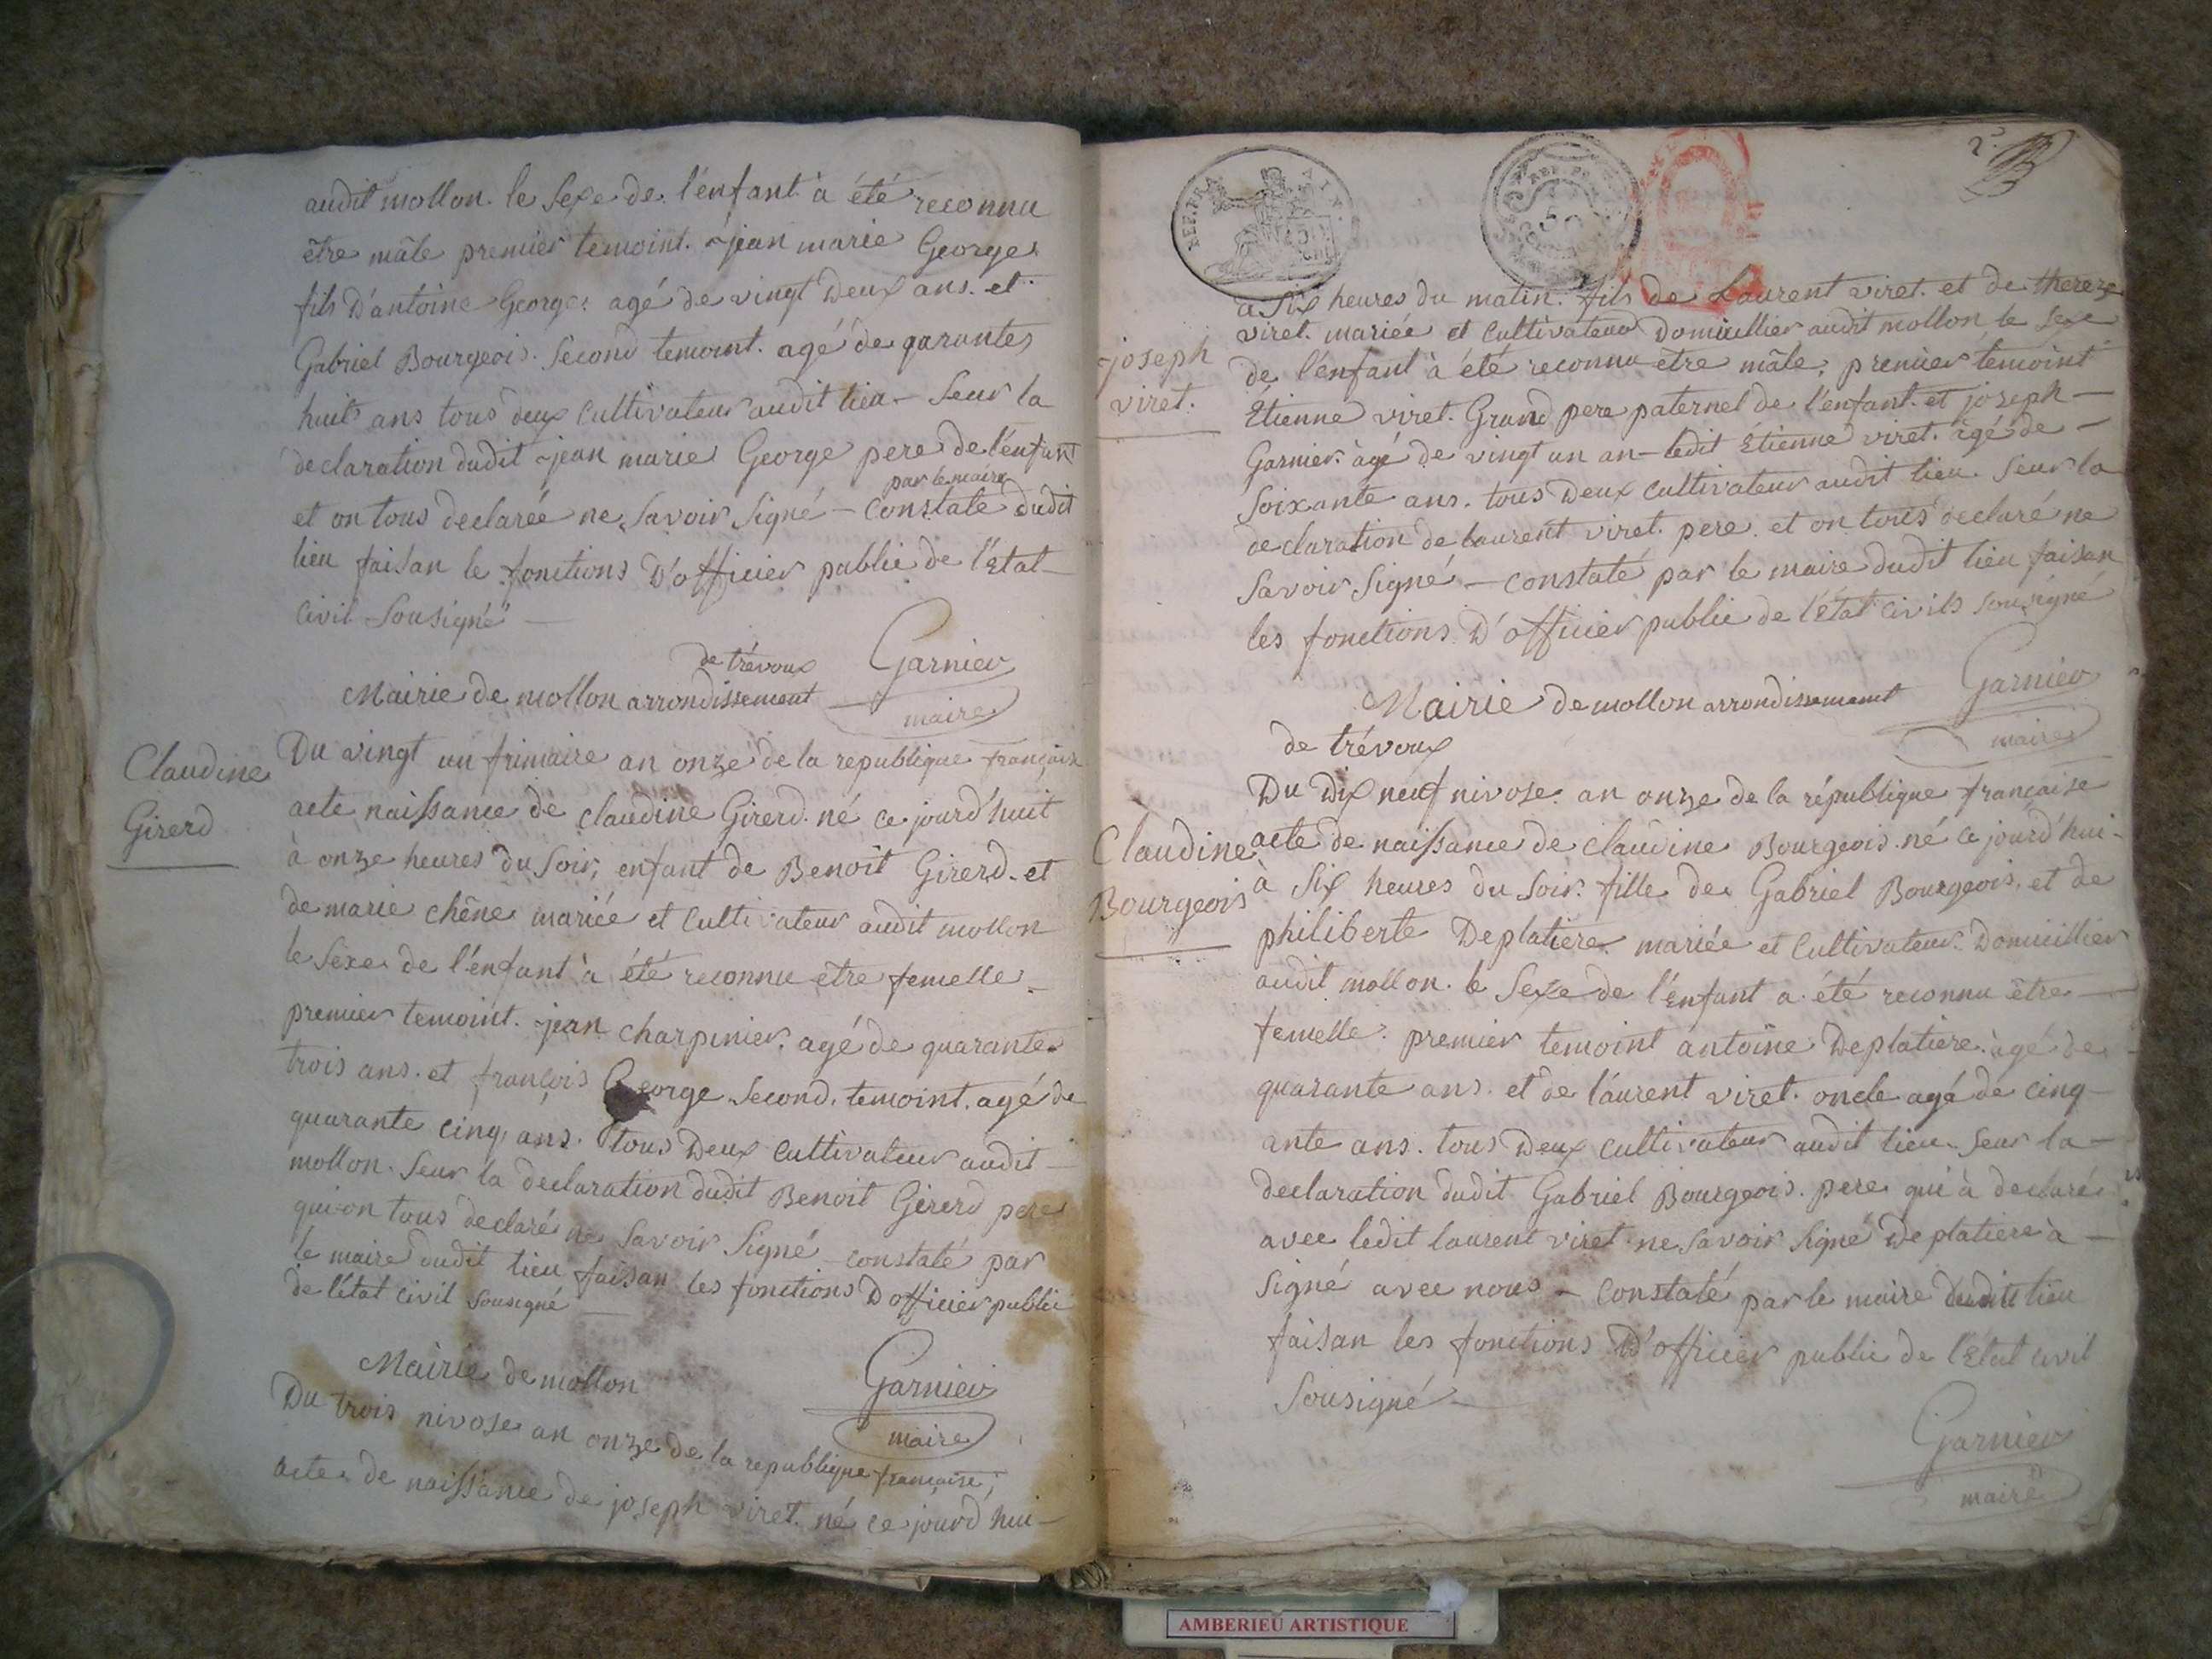 audit mollon. le Sexe de l'enfant à été reconnu
être mâle premier temoint. jean marie George
fils D'antoine George. agé de vingt Deux ans. et
Gabriel Bourgeois. Second temoint. agé de qarante
huit ans tous deux Cultivateur audit lieu - Seur la
declaration dudit jean marie George pere de l'enfant
par le maire
et on tous declarée ne Savoir Signé - Constaté dudit
lieu faisan le fonctions D'officier public de l'Etat
Civil Sousigné -
de trévoux
Garnier
Mairie de mollon arrondissement
maire
Claudine
Girerd
Du vingt un frimaire an onze de la republique française
acte naissance de claudine Girerd. né ce jourd'huit
à onze heures du Soir, enfant de Benoit Girerd. et
de marie chêne mariée et Cultivateur audit mollon
le Sexe de l'enfant à été reconnu etre femelle -
premier temoint. jean charpinier. agé de quarante
trois ans. et françois George Second. temoint. agé de
quarante cinq ans. tous Deux Cultivateur audit -
mollon. Seur la declaration dudit Benoit Girerd pere
qui on tous declaré ne Savoir Signé - constaté par
le maire dudit lieu faisan les fonctions D'officier public
de l'état civil Sousigné -
Mairie de mollon
Garnier
maire
Du trois nivose an onze de la republique francaise,
acte de naissance de joseph viret. né ce jourd'hui -
REP. FRA.
AIN.
2.
joseph
viret.
à Six heures du matin. fils de Laurent viret. et de therese
viret. mariée et Cultivateur Domicillier audit mollon le Sexe
de l'enfant à été reconnu etre mâle, premier temoint
Etienne viret. Grand pere paternel de l'enfant. et joseph -
Garnier. àgé de vingt un an - ledit Etienne viret. àgé de -
Soixante ans. tous Deux Cultivateur audit lieu. Seur la
declaration de laurent viret. pere. et on tous declaré ne
Savoir Signé - constaté par le maire dudit lieu faisan
les fonctions D'officier public de l'état civils sousigné
Garnier
maire
Mairie de mollon arrondissement
de trévoux
Claudine
Bourgeois
Du Dix neuf nivose. an onze de la république francaise
acte de naissance de claudine Bourgeois. né ce jourd'hui -
à Six heures du Soir. fille de Gabriel Bourgeois, et de
philiberte Deplatiere mariée et Cultivateur. Domicillier
audit mollon. le Sexe de l'enfant a été reconnu être -
femelle. premier temoint antoine Deplatiere. àgé de
quarante ans. et de laurent viret. oncle agé de cinq
ante ans. tous Deux Cultivateur audit lieu. Seur la -
declaration dudit Gabriel Bourgeois. pere qui à declaré
avec ledit laurent viret ne Savoir Signé Deplatiere à -
Signé avec nous - Constaté par le maire dudit lieu
faisan les fonctions D'officier public de l'Etat civil
Sousigné -
Garnier
maire
AMBERIEU ARTISTIQUE